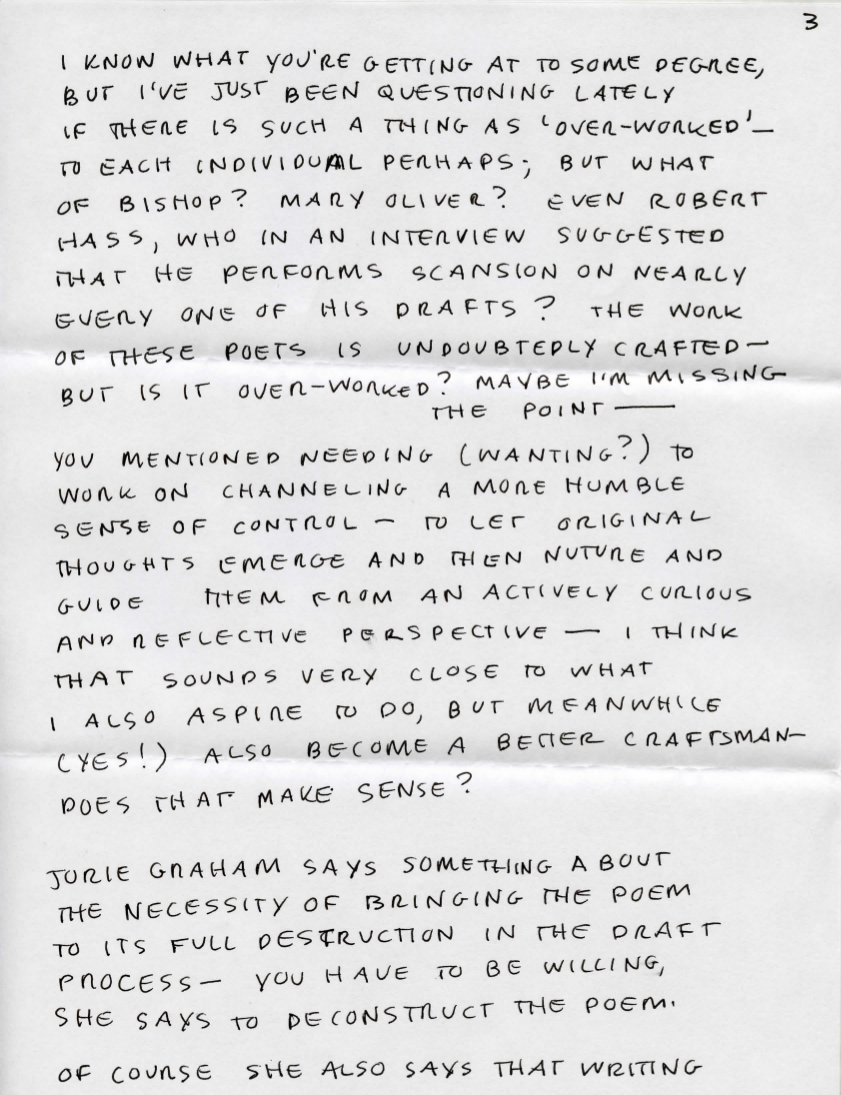 3
I KNOW WHAT YOU'RE GETTING AT TO SOME DEGREE,
BUT I'VE JUST BEEN QUESTIONING LATELY
IF THERE IS SUCH A THING AS 'OVER-WORKED'—
TO EACH INDIVIDUAL PERHAPS; BUT WHAT
OF BISHOP? MARY OLIVER? EVEN ROBERT
HASS, WHO IN AN INTERVIEW SUGGESTED
THAT HE PERFORMS SCANSION ON NEARLY
EVERY ONE OF HIS DRAFTS? THE WORK
OF THESE POETS IS UNDOUBTEDLY CRAFTED—
BUT IS IT OVER-WORKED? MAYBE I'M MISSING
THE POINT—
YOU MENTIONED NEEDING (WANTING?) TO
WORK ON CHANNELING A MORE HUMBLE
SENSE OF CONTROL — TO LET ORIGINAL
THOUGHTS EMERGE AND THEN NUTURE AND
GUIDE THEM FROM AN ACTIVELY CURIOUS
AND REFLECTIVE PERSPECTIVE — I THINK
THAT SOUNDS VERY CLOSE TO WHAT
I ALSO ASPIRE TO DO, BUT MEANWHILE
(YES!) ALSO BECOME A BETTER CRAFTSMAN—
DOES THAT MAKE SENSE?
JORIE GRAHAM SAYS SOMETHING ABOUT
THE NECESSITY OF BRINGING THE POEM
TO ITS FULL DESTRUCTION IN THE DRAFT
PROCESS— YOU HAVE TO BE WILLING,
SHE SAYS TO DECONSTRUCT THE POEM.
OF COURSE SHE ALSO SAYS THAT WRITING